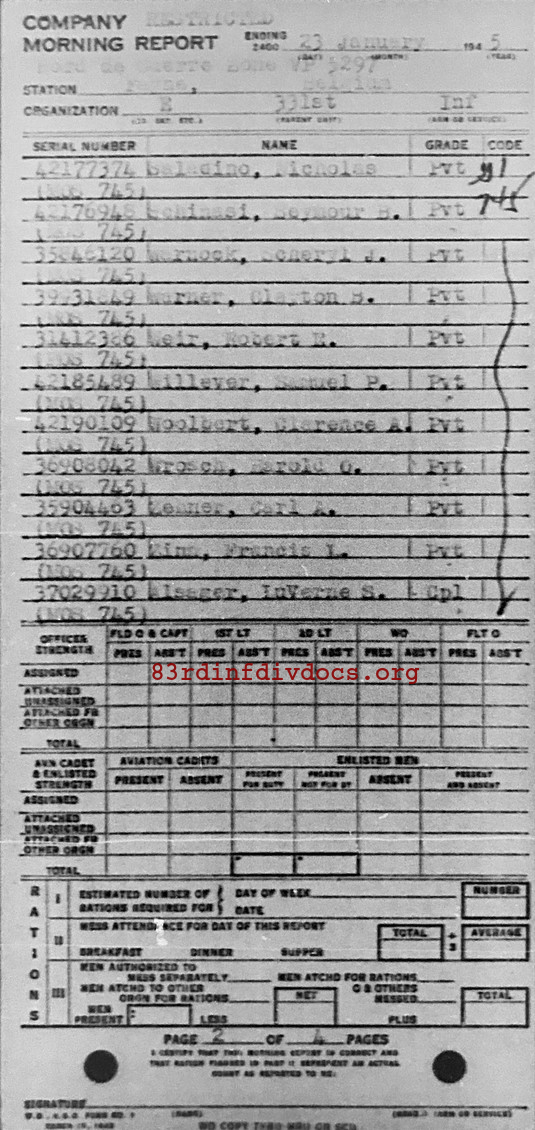 COMPANY RESTRICTED
MORNING REPORT ENDING 2400 23 January 1945
(DAY) (MONTH) (YEAR)
Nord de Guerre Zone VP 5297
STATION Belgium
ORGANIZATION E 331st Inf
(CO. DET. ETC.) (PARENT UNIT) (ARM OR SERVICE)
SERIAL NUMBER NAME GRADE CODE
42177374 Saladino, Nicholas Pvt
(MOS 745)
42176948 Schinasi, Seymour H. Pvt 745
(MOS 745)
35846120 Warnock, Scheryl J. Pvt
(MOS 745)
39931849 Warner, Clayton B. Pvt
(MOS 745)
31412386 Weir, Robert R. Pvt
(MOS 745)
42185489 Willever, Samuel P. Pvt
(MOS 745)
42190109 Woolbert, Clarence A. Pvt
(MOS 745)
36908042 Wrosch, Harold O. Pvt
(MOS 745)
35904463 Carl A. Pvt
(MOS 745)
36907760 Zins, Francis L. Pvt
(MOS 745)
37029910 Alsager, LuVerne S. Cpl
(MOS 745)
OFFICER STRENGTH FLD O & CAPT 1ST LT 2D LT WO FLT O
PRES ABS'T PRES ABS'T PRES ABS'T PRES ABS'T PRES ABS'T
ASSIGNED
83rdinfdivdocs.org
ATTACHED UNASSIGNED
ATTACHED FR OTHER ORGN
TOTAL
AVN CADET & ENLISTED STRENGTH AVIATION CADETS ENLISTED MEN
PRESENT ABSENT PRESENT FOR DUTY PRESENT NOT FOR DY ABSENT PRESENT AND ABSENT
ASSIGNED
ATTACHED UNASSIGNED
ATTACHED FR OTHER ORGN
TOTAL
RATIONS
I ESTIMATED NUMBER OF RATIONS REQUIRED FOR DAY OF WEEK DATE NUMBER
II MESS ATTENDANCE FOR DAY OF THIS REPORT TOTAL ÷ 3 AVERAGE
BREAKFAST DINNER SUPPER
III MEN AUTHORIZED TO MESS SEPARATELY MEN ATCHD FOR RATIONS
MEN ATCHD TO OTHER ORGN FOR RATIONS NET O & OTHERS MESSED TOTAL
MEN PRESENT LESS PLUS
PAGE 2 OF 4 PAGES
I CERTIFY THAT THIS MORNING REPORT IS CORRECT AND
THAT RATION FIGURES IN PART III REPRESENT AN ACTUAL
COUNT AS REPORTED TO ME:
SIGNATURE
W.D., A.G.O. FORM NO. 1 (NAME) (GRADE) (ARM OR SERVICE)